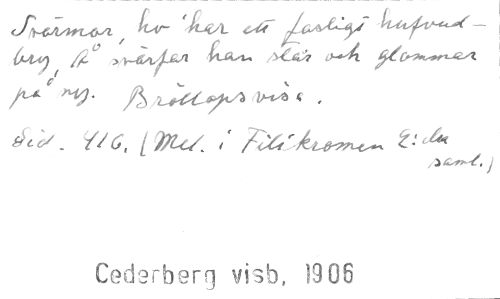 Svärmor, ho har ett fasligt hufvud-
bry, Å svärfar han slår och glammar
på ny. Bröllopsvisa.
Sid. 416. (Mel. i Filikromen 2:dra
saml.)
Cederberg visb, 1906